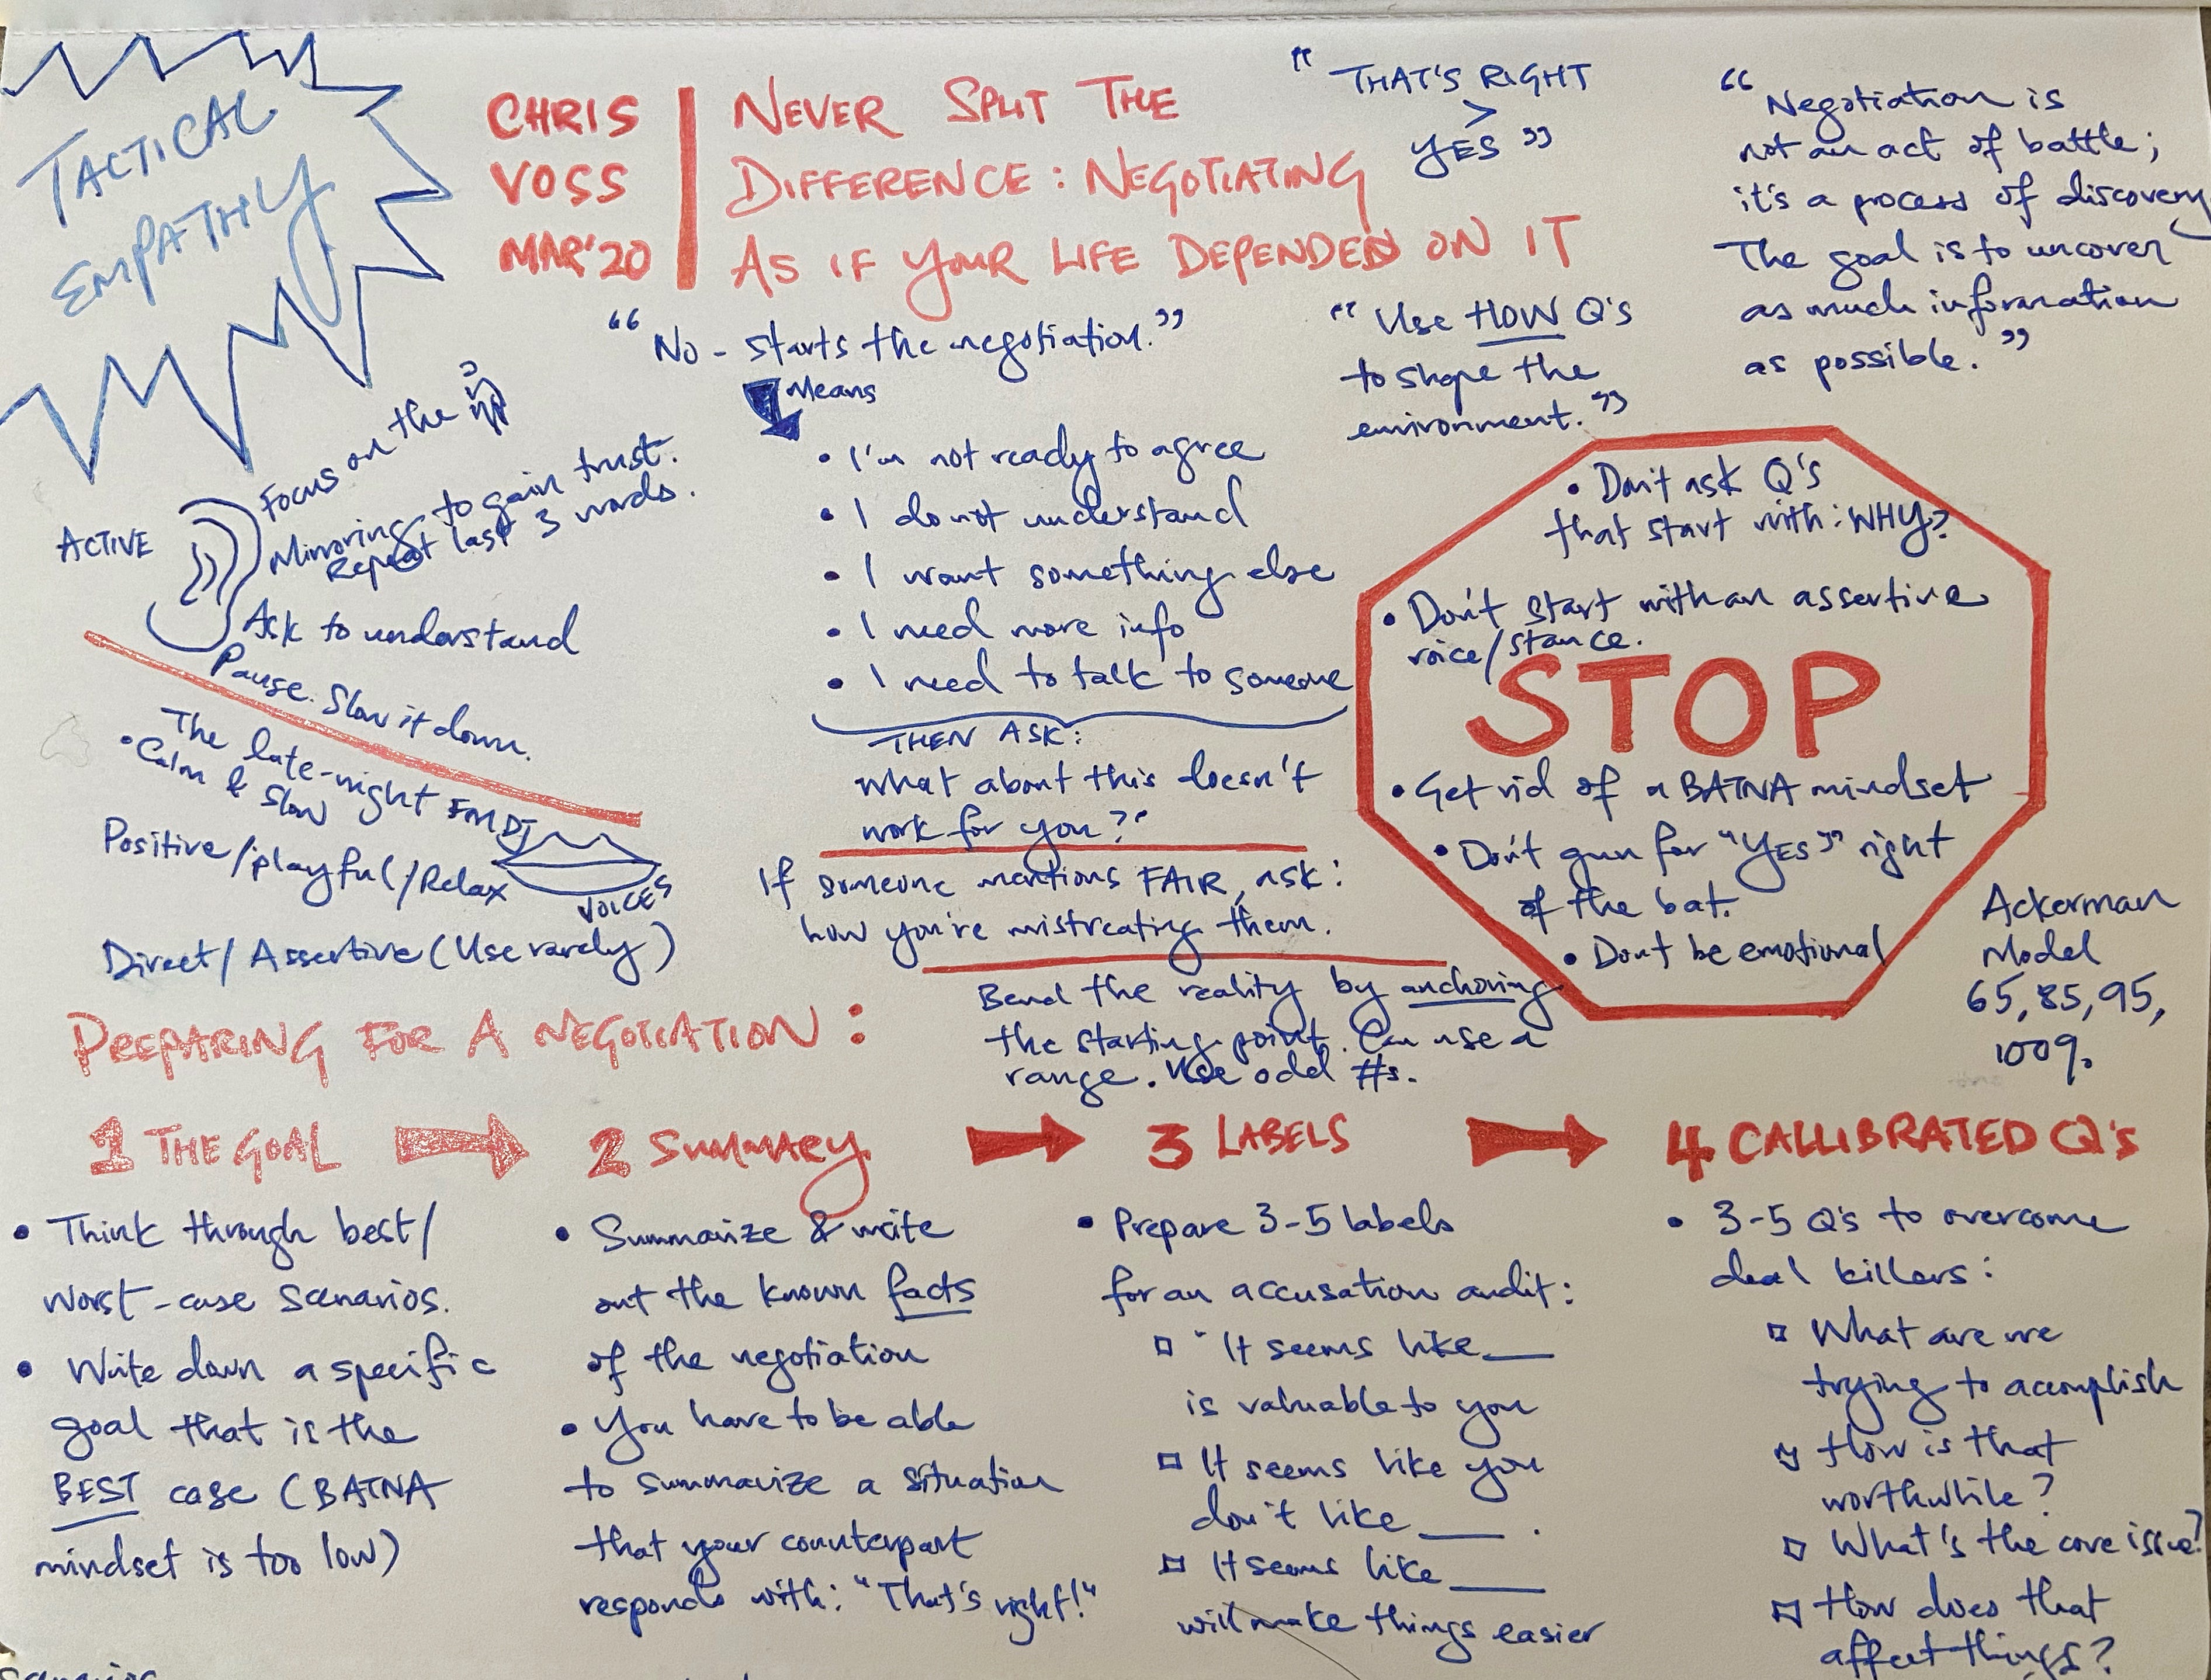 TACTICAL
EMPATHY
CHRIS
VOSS
MAR'20
NEVER SPLIT THE
DIFFERENCE: NEGOTIATING
AS IF YOUR LIFE DEPENDED ON IT
" THAT'S RIGHT
>
YES "
"Negotiation is
not an act of battle;
it's a process of discovery
The goal is to uncover
as much information
as possible."
"No - starts the negotiation."
Means
• I'm not ready to agree
• I do not understand
• I want something else
• I need more info
• I need to talk to someone
THEN ASK:
what about this doesn't
work for you?"
If someone mentions FAIR, ask:
how you're mistreating them.
Bend the reality by anchoring
the starting point. Can use a
range. Use odd #s.
"Use HOW Q's
to shape the
environment."
ACTIVE
Focus on the
Mirroring to gain trust.
Repeat last 3 words.
Ask to understand
Pause. Slow it down.
The late-night FM DJ
• Calm & Slow
Positive/playful/Relax
VOICES
Direct/Assertive (Use rarely)
• Don't ask Q's
that start with: WHY?
• Don't start with an assertive
voice/stance.
STOP
• Get rid of a BATNA mindset
• Don't gun for "YES" right
of the bat.
• Dont be emotional
Ackerman
Model
65, 85, 95,
100%
PREPARING FOR A NEGOTIATION:
1 THE GOAL
• Think through best/
worst-case scenarios.
• Write down a specific
goal that is the
BEST case (BATNA
mindset is too low)
2 SUMMARY
• Summarize & write
out the known facts
of the negotiation
• You have to be able
to summarize a situation
that your counterpart
responds with: "That's right!"
3 LABELS
• Prepare 3-5 labels
for an accusation audit:
"It seems like___
is valuable to you
It seems like you
don't like ____.
It seems like ____
will make things easier
4 CALLIBRATED Q's
• 3-5 Q's to overcome
deal killers:
What are we
trying to accomplish
How is that
worthwhile?
What's the core issue?
How does that
affect things?